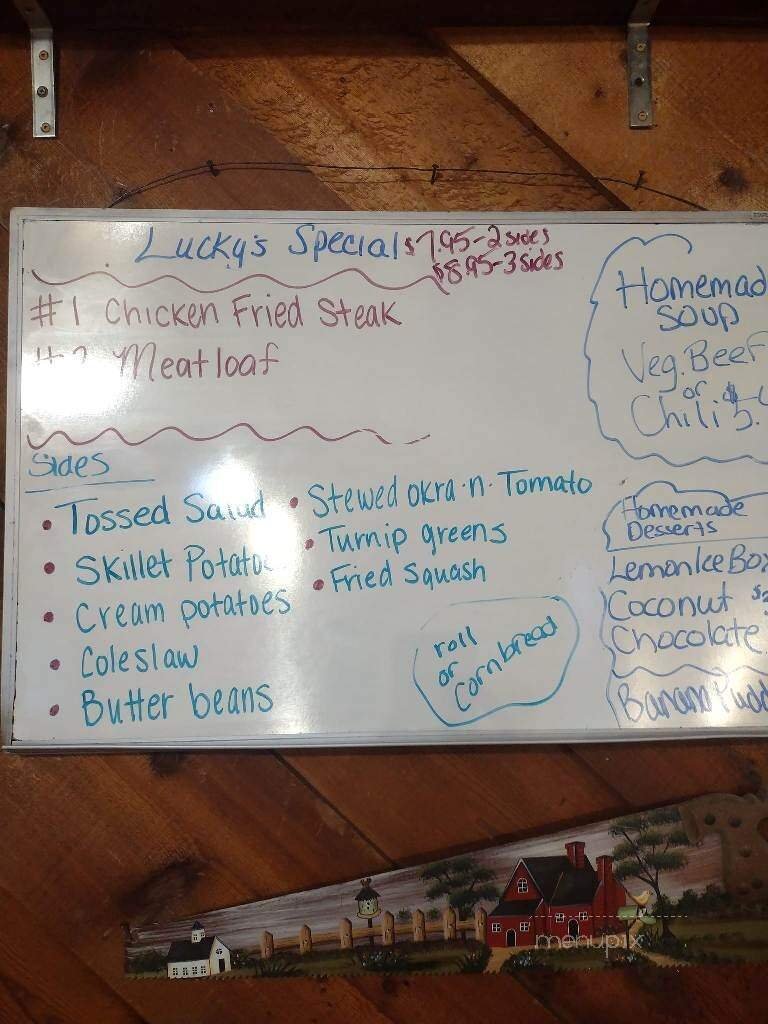 Lucky's Special $7.95-2 sides
$8.95-3 sides
#1 Chicken Fried Steak
Meatloaf
Sides
• Tossed Salad
• Skillet
• Cream potatoes
• Coleslaw
• Butter beans
• Stewed okra·n·Tomato
• Turnip greens
• Fried Squash
roll
or
Cornbread
Homemad
Soup
Veg. Beef
or
Chili
Homemade
Desserts
Lemon Ice Box
Coconut
Chocolate
Banana Pudd
menupix